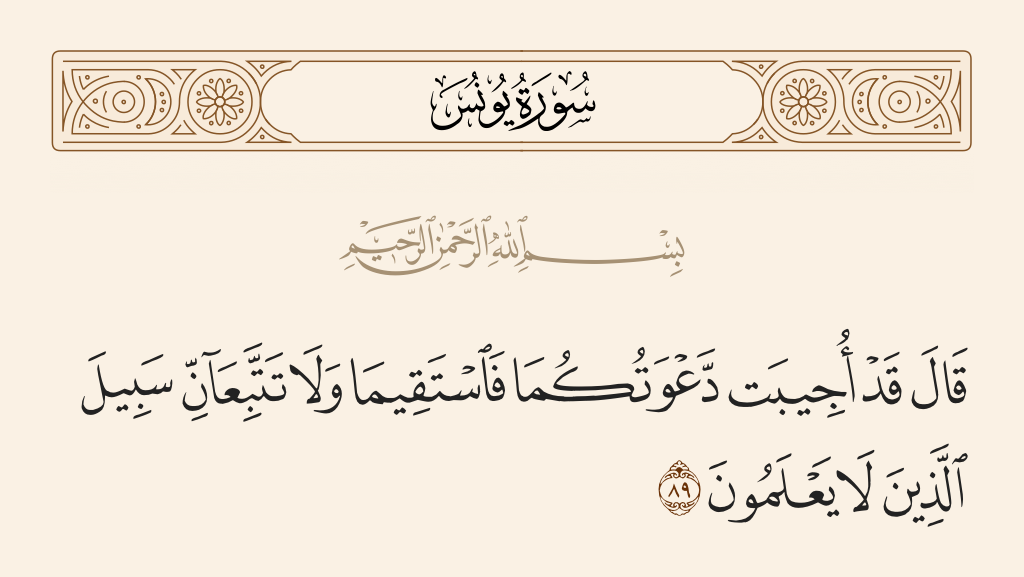 سُورَةُ يُونُسَ
بِسْمِ ٱللَّهِ ٱلرَّحْمَٰنِ ٱلرَّحِيمِ
قَالَ قَدْ أُجِيبَت دَّعْوَتُكُمَا فَٱسْتَقِيمَا وَلَا تَتَّبِعَآنِّ سَبِيلَ
ٱلَّذِينَ لَا يَعْلَمُونَ ٨٩